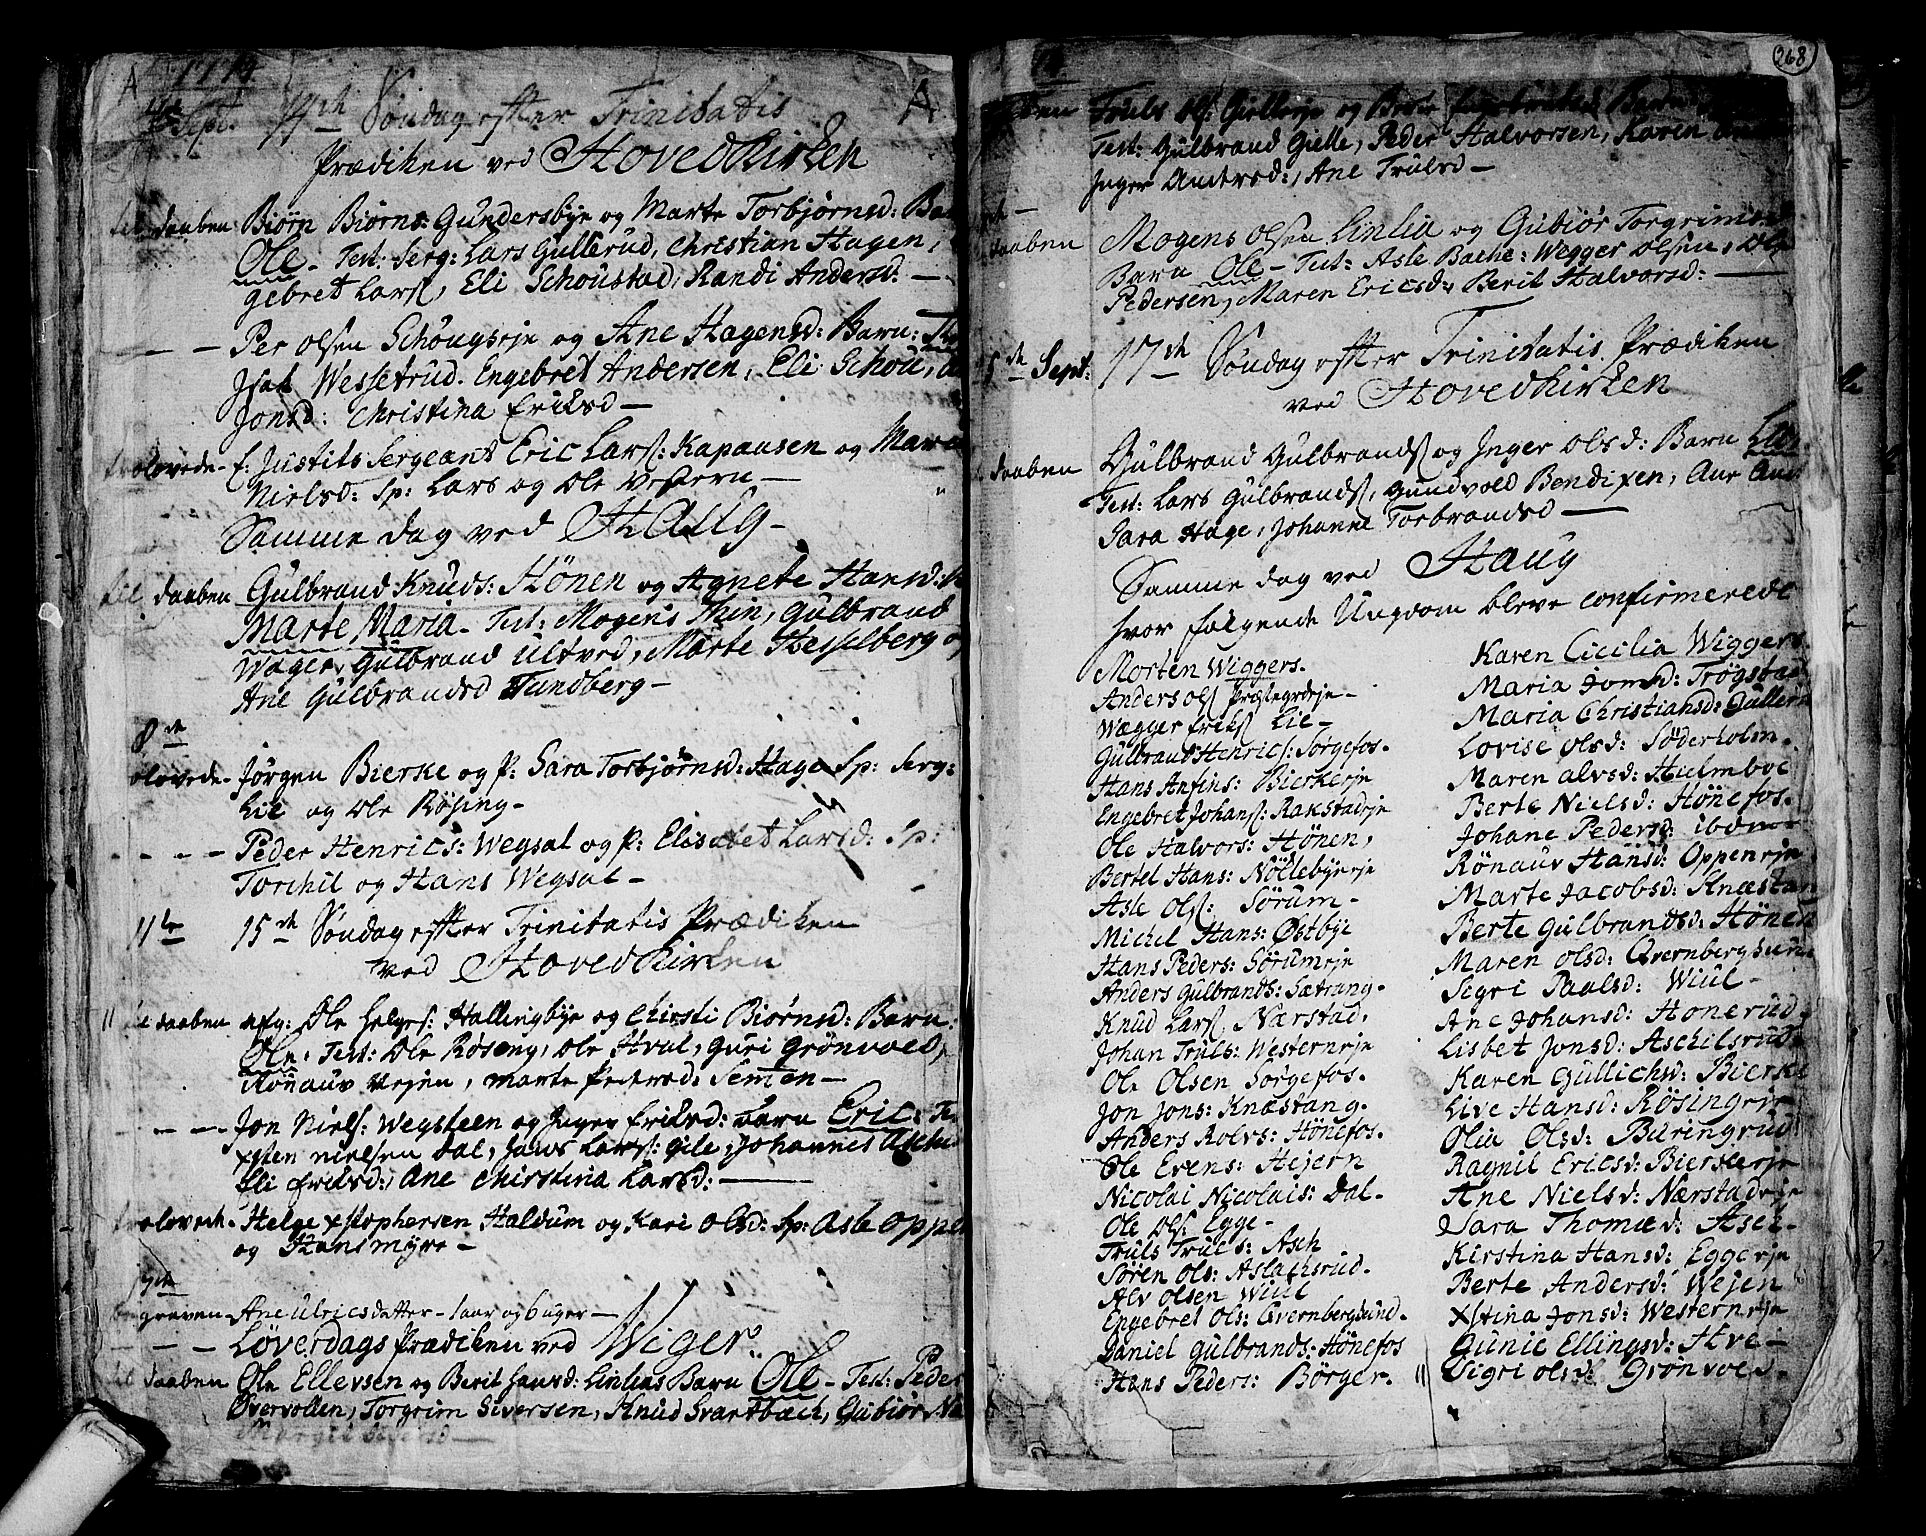 1774
A A
4de Sept. 14th Søndag efter Trinitatis
Prædiken ved Hovedkirken
til daaben Biørn Biørns: Gundersbye og Marte Torbjørnsd:
Ole - Test: Serg: Lars Gullerud, Christian Hagen,
gebret Lars, Eli Schoustad, Randi Andersd: -
- - - Per Olsen Schougseje og Ane Hagensd: Barn:
Isak Wessetrud. Engebret Andersen, Eli Schou,
Jonsd: Christina Eriksd -
trolovede - f: Justits Sergeant Eric Lars: Kapausen og
Nielsd: Sp: Lars og Ole Vestern -
Samme dag ved Haug -
til daaben Gulbrand Knuds: Hönen og Agnete Hansd:
Marte Maria - Test: Mogens Thin, Gulbrand
Wager, Gulbrand Ultved, Marte Hesselberg og
Ane Gulbrandsd Tandberg -
8de
olovede - Jörgen Bierke og P: Sara Torbjörnsd: Hage Sp: Serg:
Lie og Ole Rösing -
- - - - Peder Henrics: Wegsal og P: Elisabet Larsd: Sp:
Torchil og Hans Wegsal -
11te 15de Søndag efter Trinitatis Prædiken
ved Hovedkirken
til daaben Ole Helges: Hallingbye og Chirsti Biørnsd: Barn
Ole, Test: Ole Roseng, Ole Hval, Guri Grönvold,
Rönauv Vejen, Marte Pedersd: Semmen -
- - - - Jon Niels: Wegsteen og Inger Eriksd: Barn Eric: Te
xsten Nielsen Dal, Hans Lars: Gile, Johannes
Eli Eriksd:, Ane Chirstina Larsd: -
trolovede - Helge xstophersen Haldum og Kari Olsd: Sp: Asle
og Hans Myre -
17de
begraven - Ane Ulricsdatter - 1 aar og 6 uger -
- - - Löverdags Prædiken ved Wiger.
til daaben Ole Ellevsen og Berit Hansd: Linlias Barn Ole - Test: Peder
Övervollen, Torgrim Siversen, Knud Svartbæck, Gubiör
Margit
268
daaben Truls Ols: Gielleeje og
Test: Gulbrand Gielle, Peder Halvorsen, Karen
Inger Andersd:, Ane Trulsd -
daaben Mogens Olsen Linlia og Gubiör Torgrimsd
Barn Ole - Test: Asle Bache: Wegger Olsen, Ole
Pedersen, Maren Ericsd: Berit Halvorsd: -
Sept: 17de Søndag efter Trinitatis Prædiken
ved Hovedkirken
daaben Gulbrand Gulbrands og Inger Olsd: Barn
Test: Lars Gulbrands, Gundvold Bendixen, Ane
Sara Hage, Johanne Torbrandsd -
Samme dag ved Haug
hvor følgende Ungdom bleve confirmerede
Morten Wiggers.
Anders Ols Præstegrdeje -
Wægger Eriks Lie -
Gulbrand Henrics: Sörgefos.
Hans Anfins: Bierkeeje
Engebret Johans: Rakstadeje
Ole Halvors: Hönen,
Bertel Hans: Nöllebyeeje
Asle Ols: Sörum -
Michel Hans: Østbye
Hans Peders: Sörumeje
Anders Gulbrands: Sætrang.
Knud Lars Nærstad.
Johan Truls: Westerneje
Ole Olsen Sørgefos.
Jon Jons: Knæstang.
Anders Rolvs: Hönefos.
Ole Evens: Hejern
Nicolai Nicolais: Dal.
Ole Ols: Egge -
Truls Truls: Asch
Sören Ols: Aslachsrud.
Alv Olsen Wiul
Engebret Ols: Qvernbergsund.
Daniel Gulbrands: Hönefos
Hans Peders: Börger.
Karen Cicilia Wiggers
Maria Jonsd: Trögstad
Maria Christiansd: Gullerud
Lovise Olsd: Söderholm.
Maren Alvsd: Hulmboe
Berte Nielsd: Hönefos.
Johane Pedersd: ibdm
Rönauv Hansd: Oppeneje
Marte Jacobsd: Knæstang
Berte Gulbrandsd: Hönen
Maren Olsd: Qvernbergsund
Sigri Paalsd: Wiul -
Ane Johansd: Honerud.
Lisbet Jonsd: Aschilsrud.
Karen Gullichsd: Bierke
Live Hansd: Rösingeje
Olia Olsd: Buringrud
Ragnil Ericsd: Bierkeeje
Ane Nielsd: Nærstadeje
Sara Thomæd: Asch -
Kirstina Hansd: Eggeeje
Berte Andersd: Wejen
Xstina Jonsd: Westerneje
Gunie Ellingsd: Hve -
Sigri Olsd Grönvold.